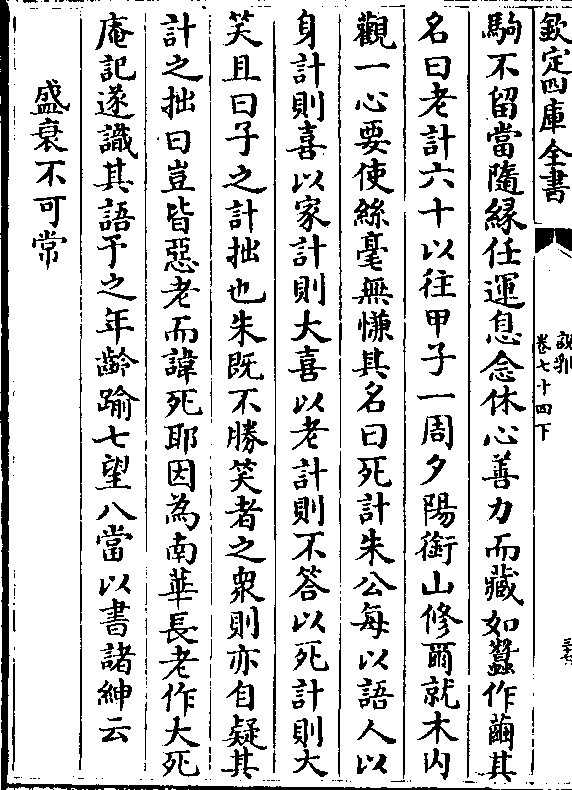 欽定四庫全書
說郛
卷七十四下
駒不留當隨緣任運息念休心善力而藏如蠶作繭其
名曰老計六十以往甲子一周夕陽銜山修爾就木内
觀一心要使絲毫無慊其名曰死計朱公每以語人以
身計則喜以家計則大喜以老計則不答以死計則大
笑且曰子之計拙也朱既不勝笑者之衆則亦自疑其
計之拙曰豈皆惡老而諱死耶因為南華長老作大死
庵記遂識其語予之年齡踰七望八當以書諸紳云
盛衰不可常